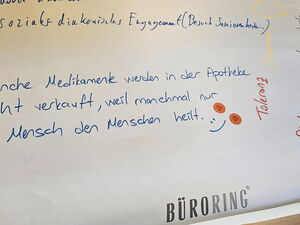 soziales diakonisches Engagement (Besuch Seniorenheim..)
nche Medikamente werden in der Apotheke
ht verkauft, weil manchmal nur
Mensch den Menschen heilt.
Toleranz
BÜRORING®